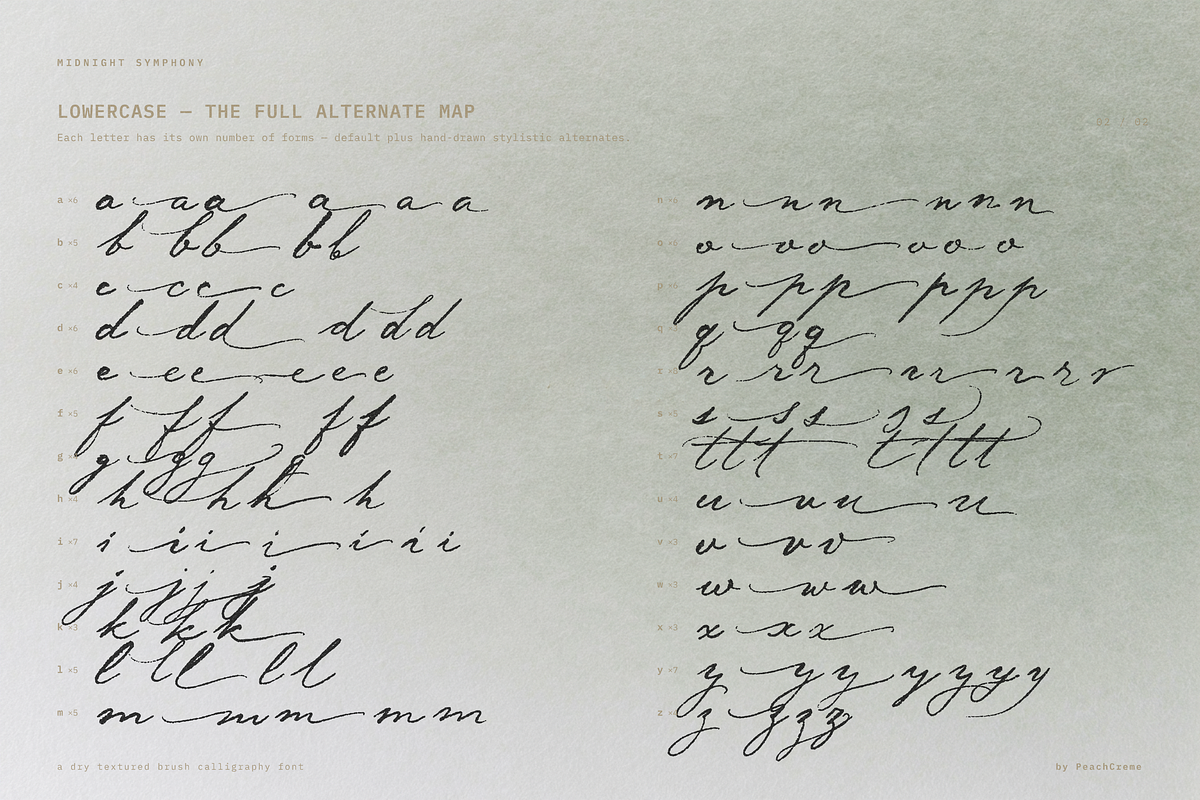 MIDNIGHT SYMPHONY
LOWERCASE — THE FULL ALTERNATE MAP
Each letter has its own number of forms — default plus hand-drawn stylistic alternates.
a ×6 a aa a a a
b ×5 b bb bb
c ×4 c cc c
d ×6 d dd d dd
e ×6 e ee e e e
f ×5 f ff ff
g g gg g
h ×4 h hh h
i ×7 i ii i i i i
j ×4 j jj j
k ×3 k kk
l ×5 l ll ll
m ×5 m mm mm
n ×6 n nn nnn
o ×6 o oo oo o
p ×6 p pp ppp
q q qq
r r rr rr rrr
s ×5 s ss ss
t ×7 ttt tttt
u ×4 u uu u
v ×3 v vv
w ×3 w ww
x ×3 x xx
y ×7 y yy yyyy
z z zzz
a dry textured brush calligraphy font
by PeachCreme